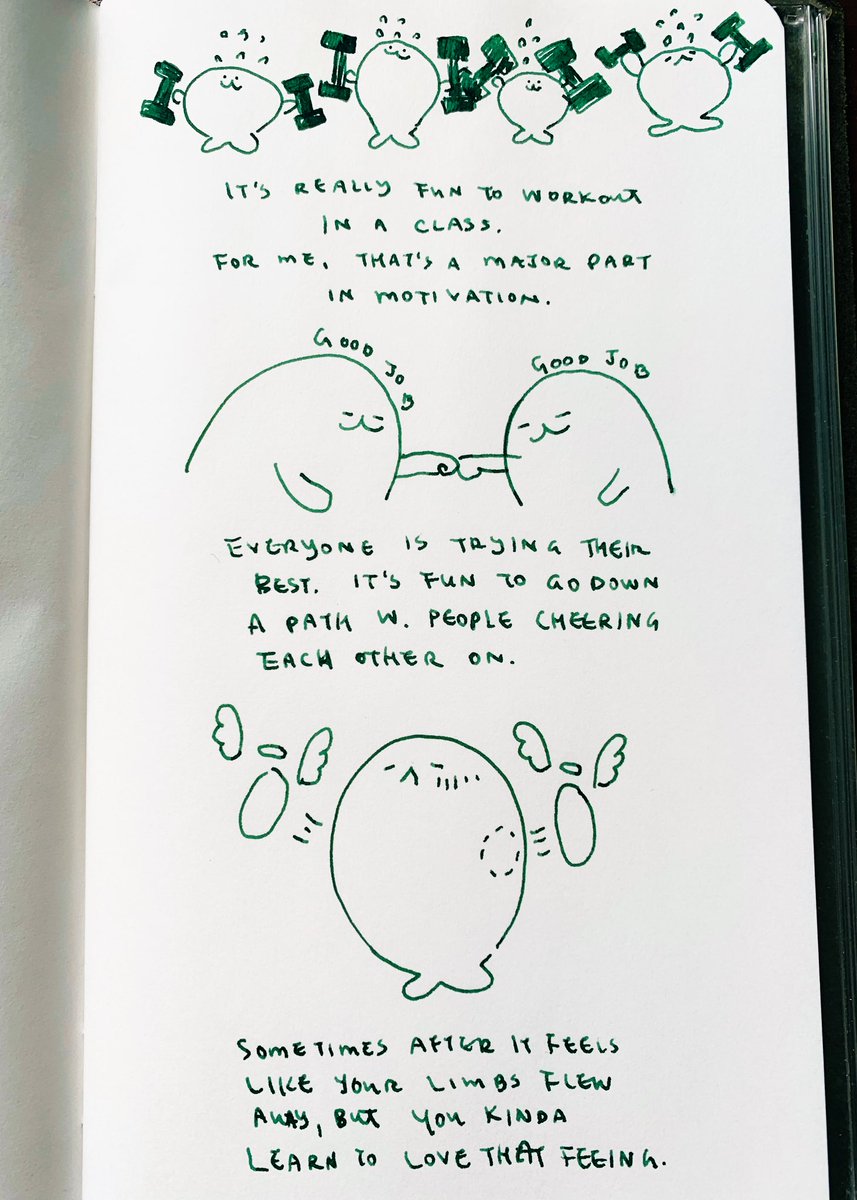 IT'S REALLY FUN TO WORKOUT
IN A CLASS.
FOR ME, THAT'S A MAJOR PART
IN MOTIVATION.
GOOD JOB
GOOD JOB
EVERYONE IS TRYING THEIR
BEST. IT'S FUN TO GO DOWN
A PATH W. PEOPLE CHEERING
EACH OTHER ON.
SOMETIMES AFTER IT FEELS
LIKE YOUR LIMBS FLEW
AWAY, BUT YOU KINDA
LEARN TO LOVE THAT FEEING.